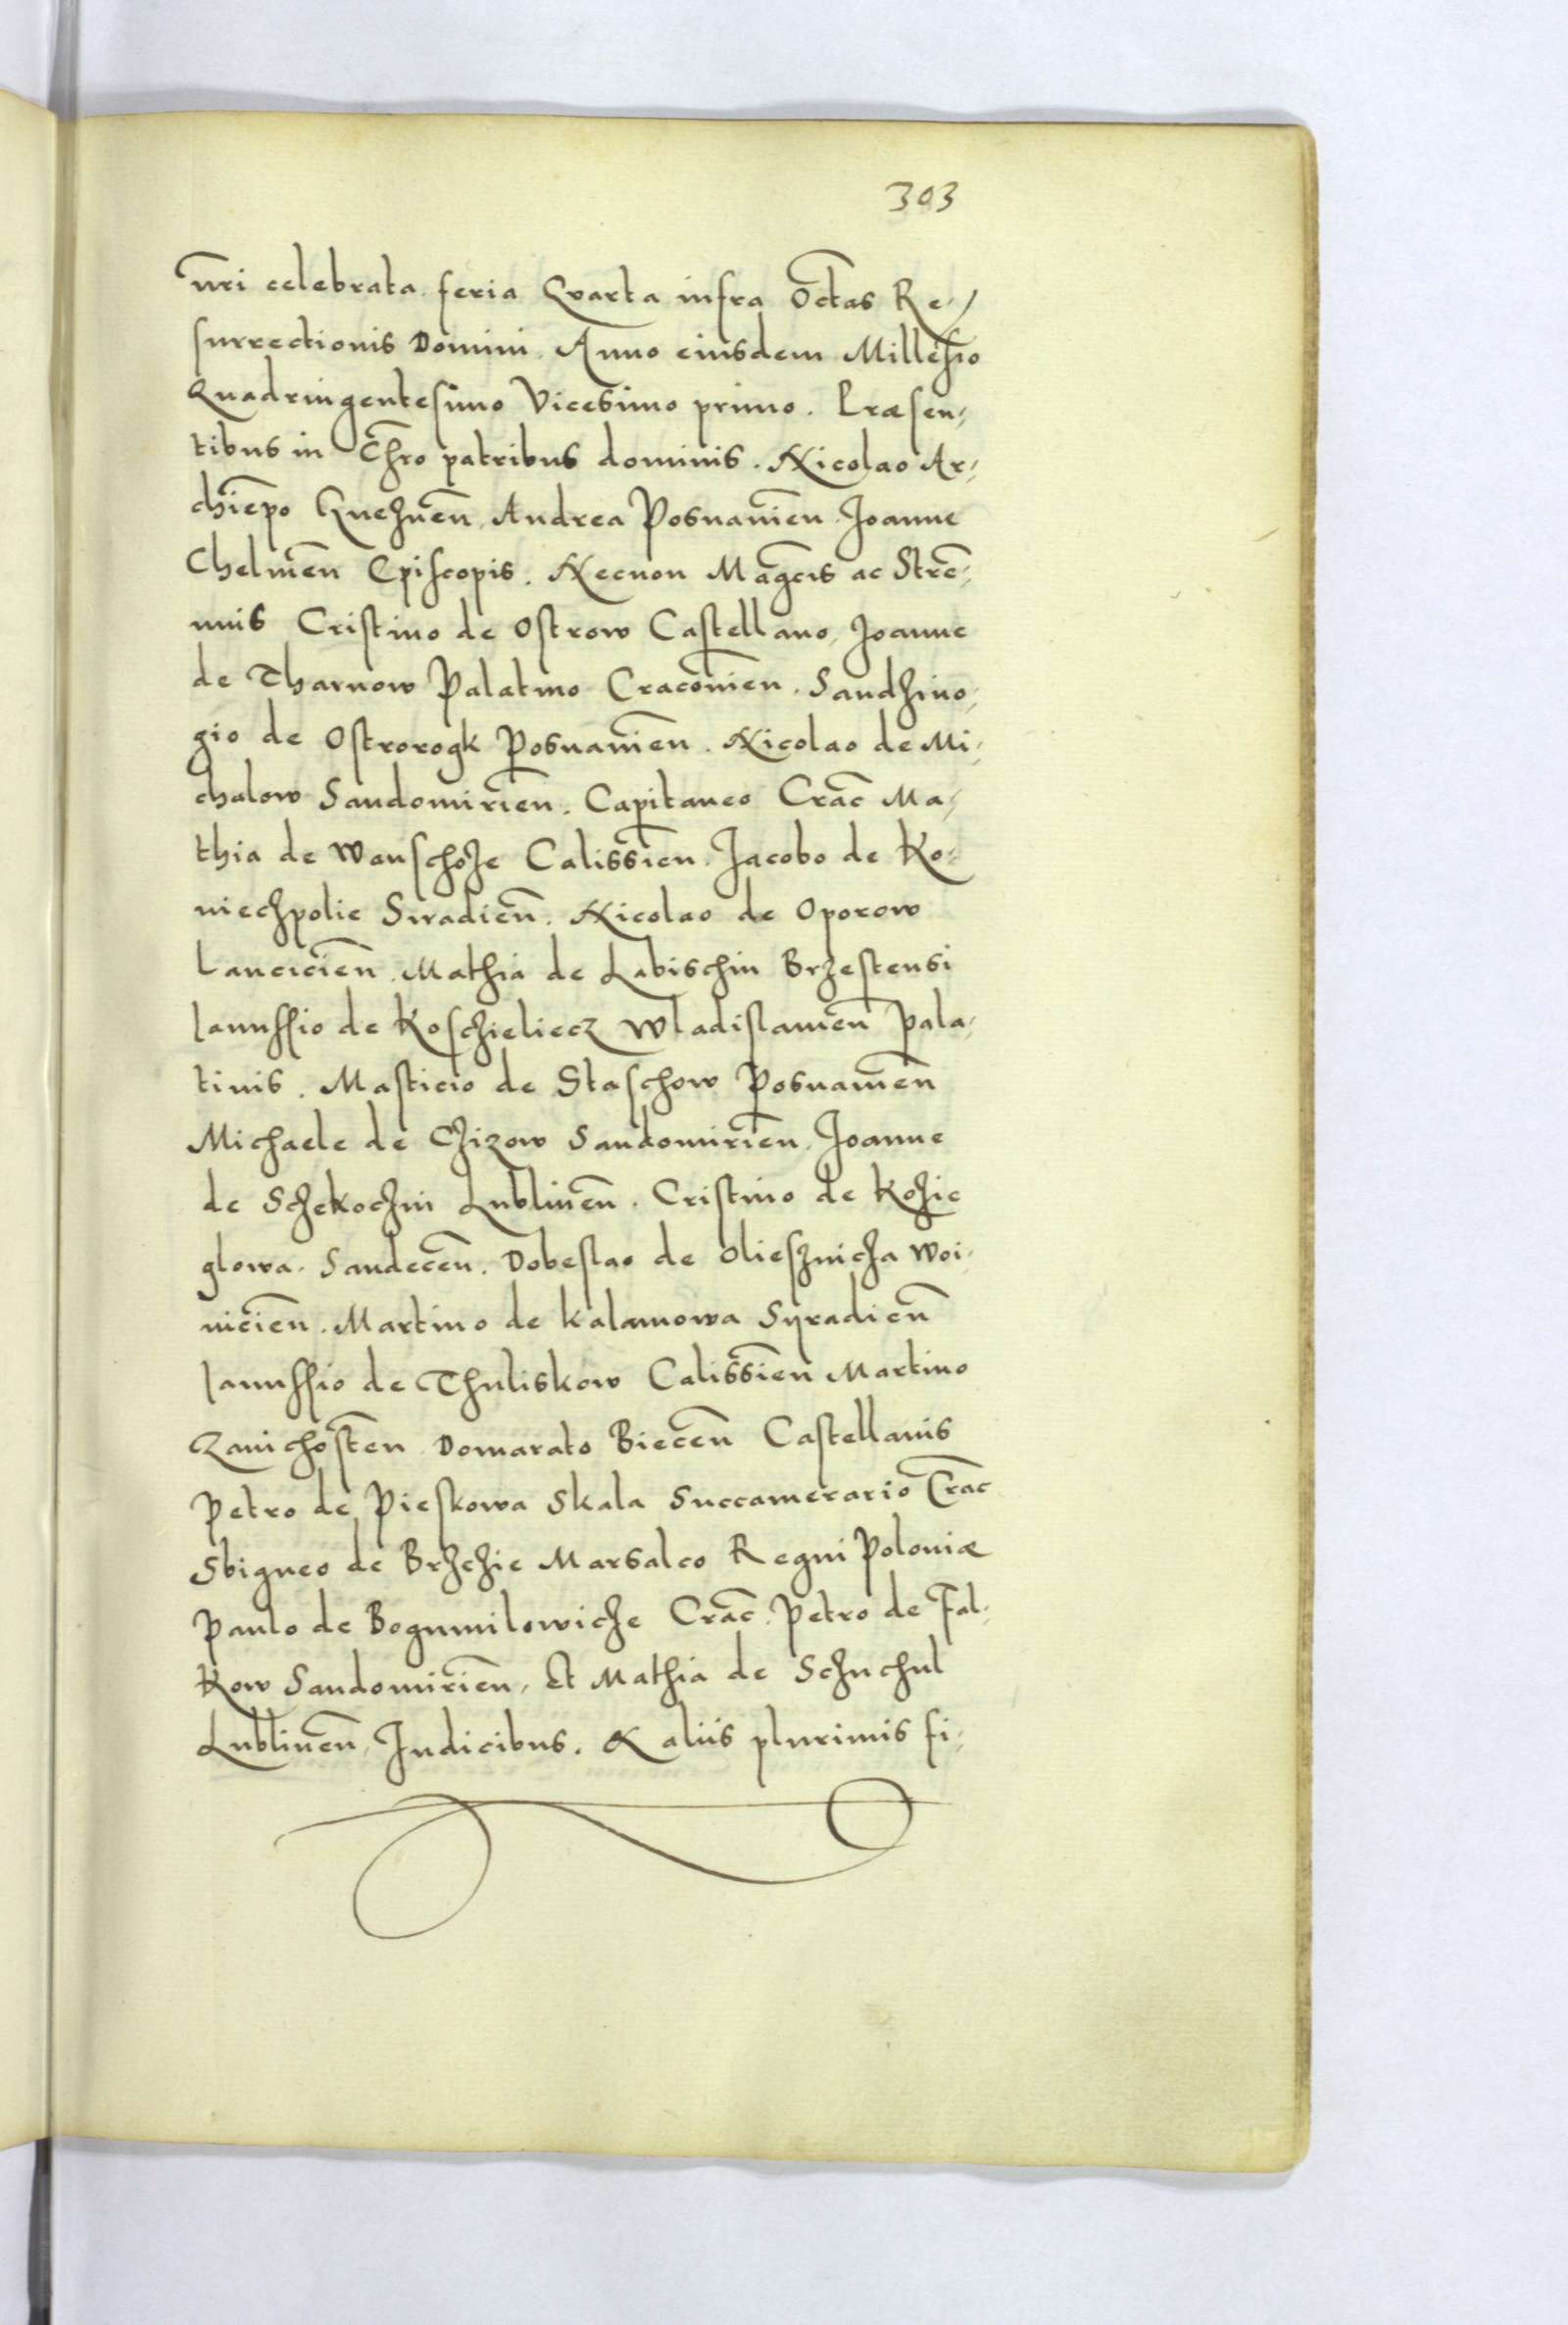 303
nri celebrata feria Qvarta infra Octas Re-
surrectionis Domini. Anno eiusdem Millesio
Quadringentesimo Vicesimo primo. Præsen-
tibus in Chro patribus dominis. Nicolao Ar-
chiepo Gneznen, Andrea Posnanien. Joanne
Chelmen Episcopis. Necnon Magcis ac Stre-
nuis Cristino de Ostrow Castellano, Joanne
de Tharnow Palatino Cracouien. Sandzivo-
gio de Ostrorogk Posnanien. Nicolao de Mi-
chalow Sandomirien. Capitaneo Crac Ma-
thia de Wanschoze Calissien. Jacobo de Ko-
niechpolie Siradien. Nicolao de Oporow
Lancicien. Mathia de Labischin Brzestensi
Janussio de Koschieliecz Wladislauien pala-
tinis. Msticio de Staschow Posnanien
Michaele de Czizow Sandomirien, Joanne
de Schekochin Lublinen. Cristino de Kozie
glowa. Sandecen. Dobeslao de Oliesznicza Woi-
nicien. Martino de Kalinowa Syradien
Janussio de Thuliskow Calissien Martino
Zauichosten Domarato Biecen Castellanis
Petro de Pieskowa Skala Succamerario Crac
Sbigneo de Brzezie Marsalco Regni Poloniæ
Paulo de Bogumilowicze Crac. Petro de Fal-
kow Sandomirien, Et Mathia de Schuchul
Lublinen, Judicibus. & aliis plurimis fi-